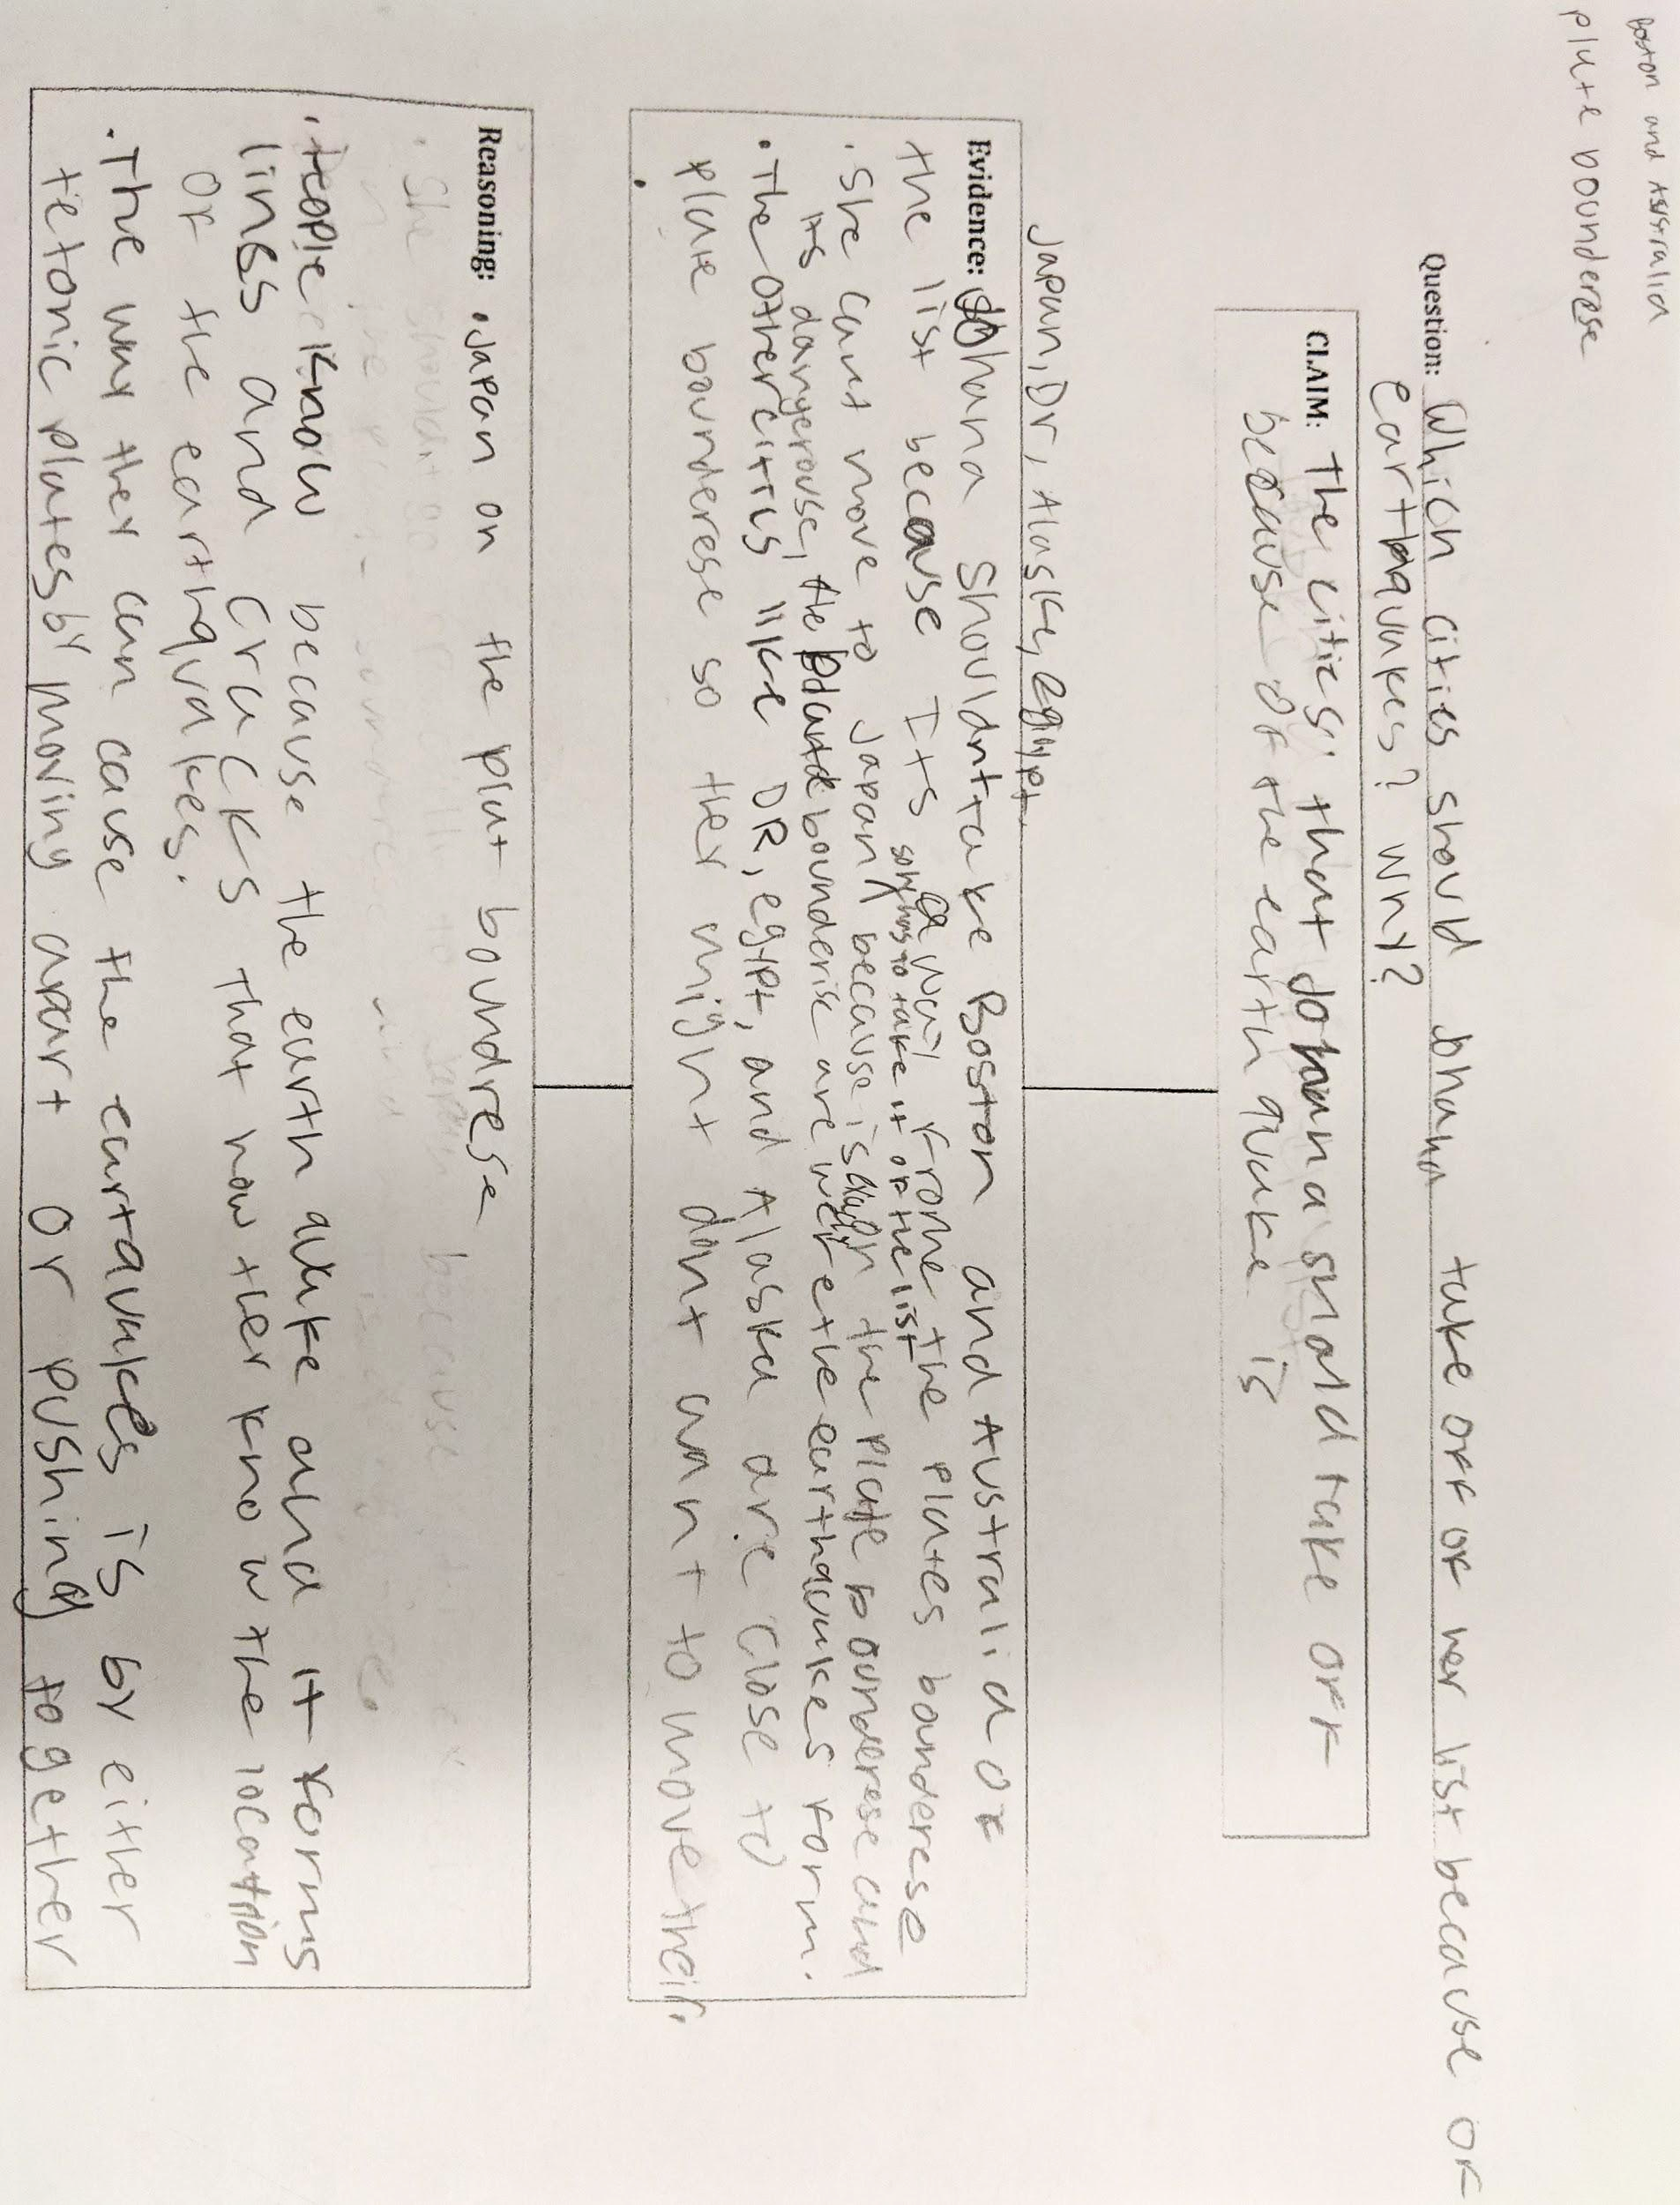 Boston and Australia
plate bounderese
Question: Which cities should take off of her list because of
earthqukes? why?
CLAIM: The cities that Johana shold take off
because of the earth quake is
Japan, Dr, Alaske, egypt.
Evidence: Johana Shouldnt take Boston and Australia of
the list because Its a way frome the plates bounderese
so has to take it of the list
. She cant move to Japan because is on the plate bounderese and
its dangerouse, the bounderise are were the earthqukes form.
. The other cities like DR, egypt, and Alaska are close to
plate bounderese so ther might dont wan t to move their.
.
Reasoning: . Japan on the plat boundrese
. People know because the earth quke and it forms
lines and cracks that how ther know the location
of the earthquakes.
. The way ther can cause the eartqukes is by either
tetonic plates by moving apart or pushing together